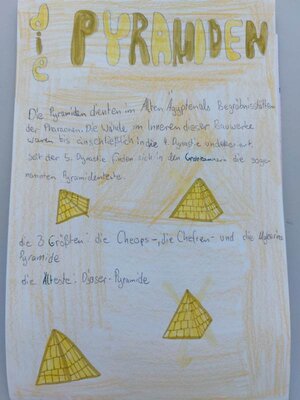 die PYRAMIDEN
Die Pyramiden dienten im Alten Ägypten als Begräbnisstätten
der Pharaonen. Die Wände im Inneren dieser Bauwerke
waren bis einschließlich in die 4. Dynastie undekoriert.
Seit der 5. Dynastie finden sich in den Grabräumen die soge-
nannten Pyramidentexte.
die 3 Größten: die Cheops-, die Chefren- und die
Pyramide
die Älteste: Djoser-Pyramide